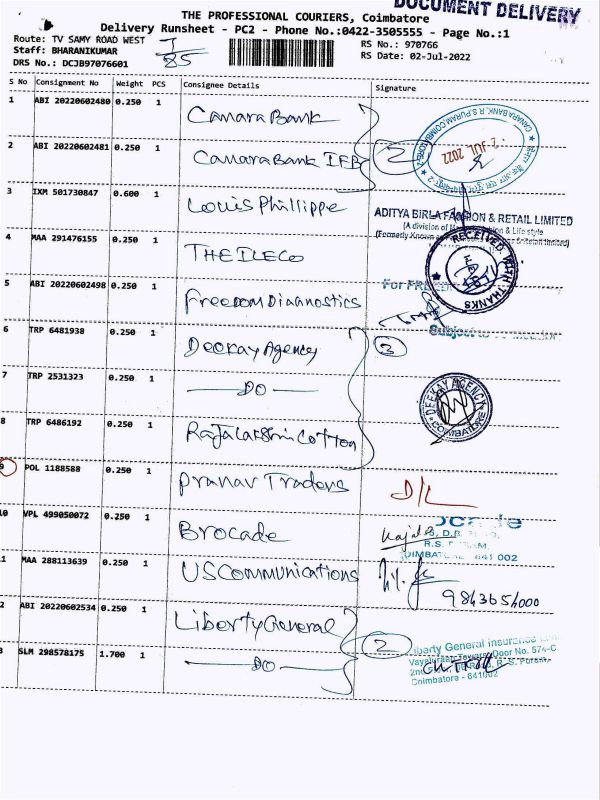 DOCUMENT DELIVERY
THE PROFESSIONAL COURIERS, Coimbatore
Delivery Runsheet - PC2 - Phone No.:0422-3505555 - Page No.:1
Route: TV SAMY ROAD WEST
Staff: BHARANIKUMAR
DRS No.: DCJB97076601
RS No.: 970766
RS Date: 02-Jul-2022
S No Consignment No Weight PCS Consignee Details Signature
1 ABI 20220602480 0.250 1 Canara Bank
2 ABI 20220602481 0.250 1 Canara Bank IFB 2
CANARA BANK, R.S.PURAM, COIMBATORE
2 JUL 2022
3 IXM 501730847 0.600 1 Louis Phillippe
ADITYA BIRLA FASHION & RETAIL LIMITED
(A division of Fashion & Life style
(Formerly Known
4 MAA 291476155 0.250 1 THEILECO
RECEIVED WITH THANKS
5 ABI 20220602498 0.250 1 Freedom Diagnostics
For
Subject to
6 TRP 6481938 0.250 1 Deekay Agency 3
7 TRP 2531323 0.250 1 DO
DEEKAY AGENCY
COIMBATORE
8 TRP 6486192 0.250 1 Rajalakshmi Cotton
9 POL 1188588 0.250 1 Pranav Traders D/L
10 VPL 499050072 0.250 1 Brocade
ocade
R.S.
641 002
11 MAA 288113639 0.250 1 US Communications
9843654000
12 ABI 20220602534 0.250 1 Liberty General 2
Liberty General Insurance
Door No. 574-C
R. S. Puram,
Coimbatore - 641002
13 SLM 298578175 1.700 1 DO